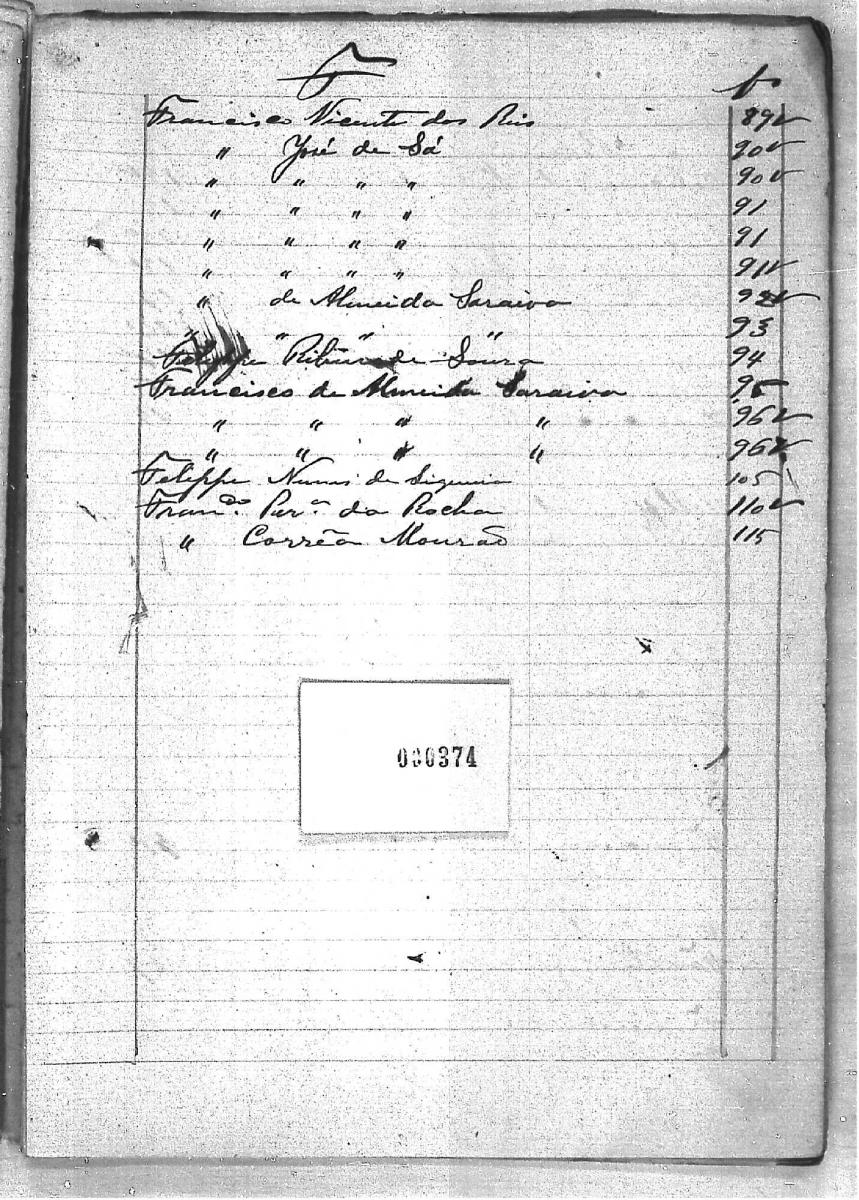 F
fs
Francisco Vicente dos Reis 89v
" José de Sá 90v
" " " " 90v
" " " " 91
" " " " 91
" " " " 91v
" de Almeida Saraiva 92v
" " " " 93
Felippe Ribeiro de Souza 94
Francisco de Almeida Saraiva 95
" " " " 96v
" " " " 96v
Felippe Nunes de Siqueira 105
Fran.do Per.a da Rocha 110v
" Corrêa Mourão 115
000374